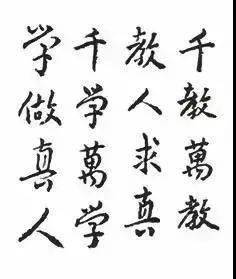 千教萬教
教人求真
千学萬学
学做真人